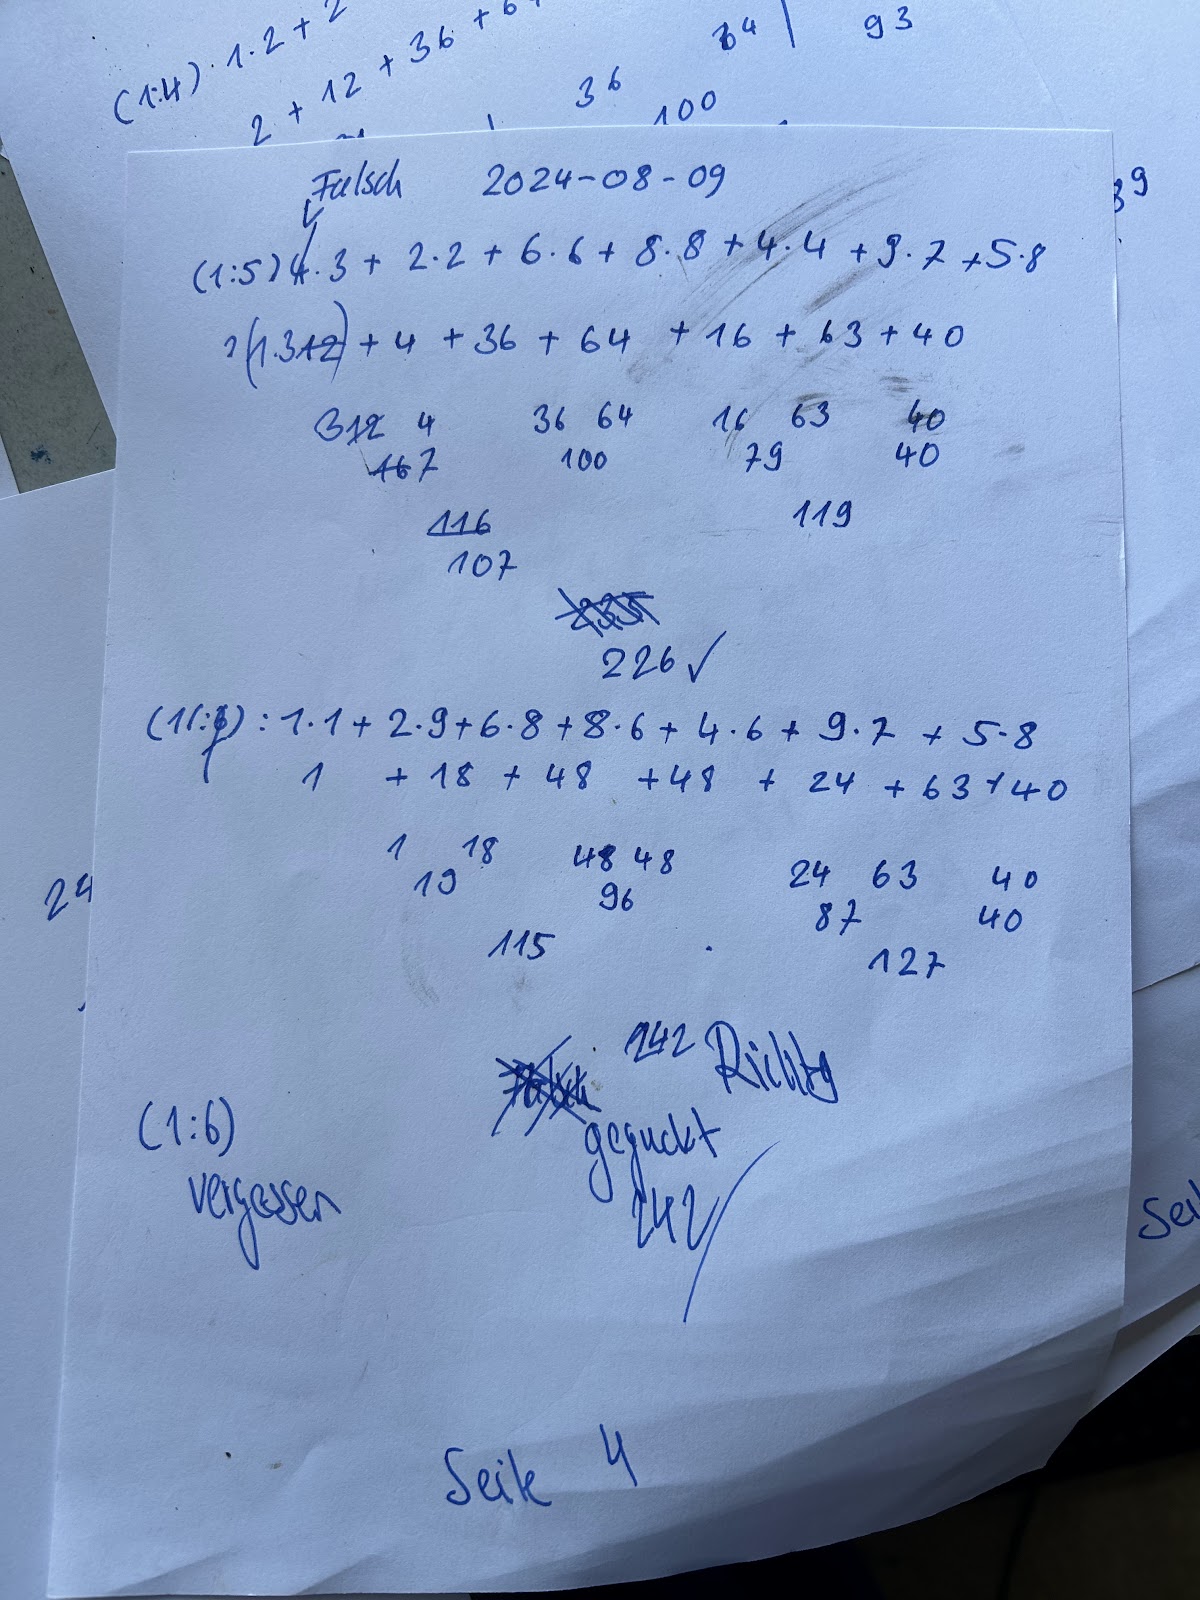 (1:4) · 1·2 + 2
2 + 12 + 36 + 64
36
100
64 | 93
39
Falsch 2024-08-09
(1:5) 4·3 + 2·2 + 6·6 + 8·8 + 4·4 + 9·7 + 5·8
(1·3 12) + 4 + 36 + 64 + 16 + 63 + 40
3 12 4 36 64 16 63 40
16 7 100 79 40
116 119
107
226 ✓
: 1·1 + 2·9 + 6·8 + 8·6 + 4·6 + 9·7 + 5·8
1 + 18 + 48 + 48 + 24 + 63 + 40
1 18 48 48 24 63 40
19 96 87 40
115 127
242 Richtig
geguckt
242
(1:6)
vergessen
Seite 4
24
Sei